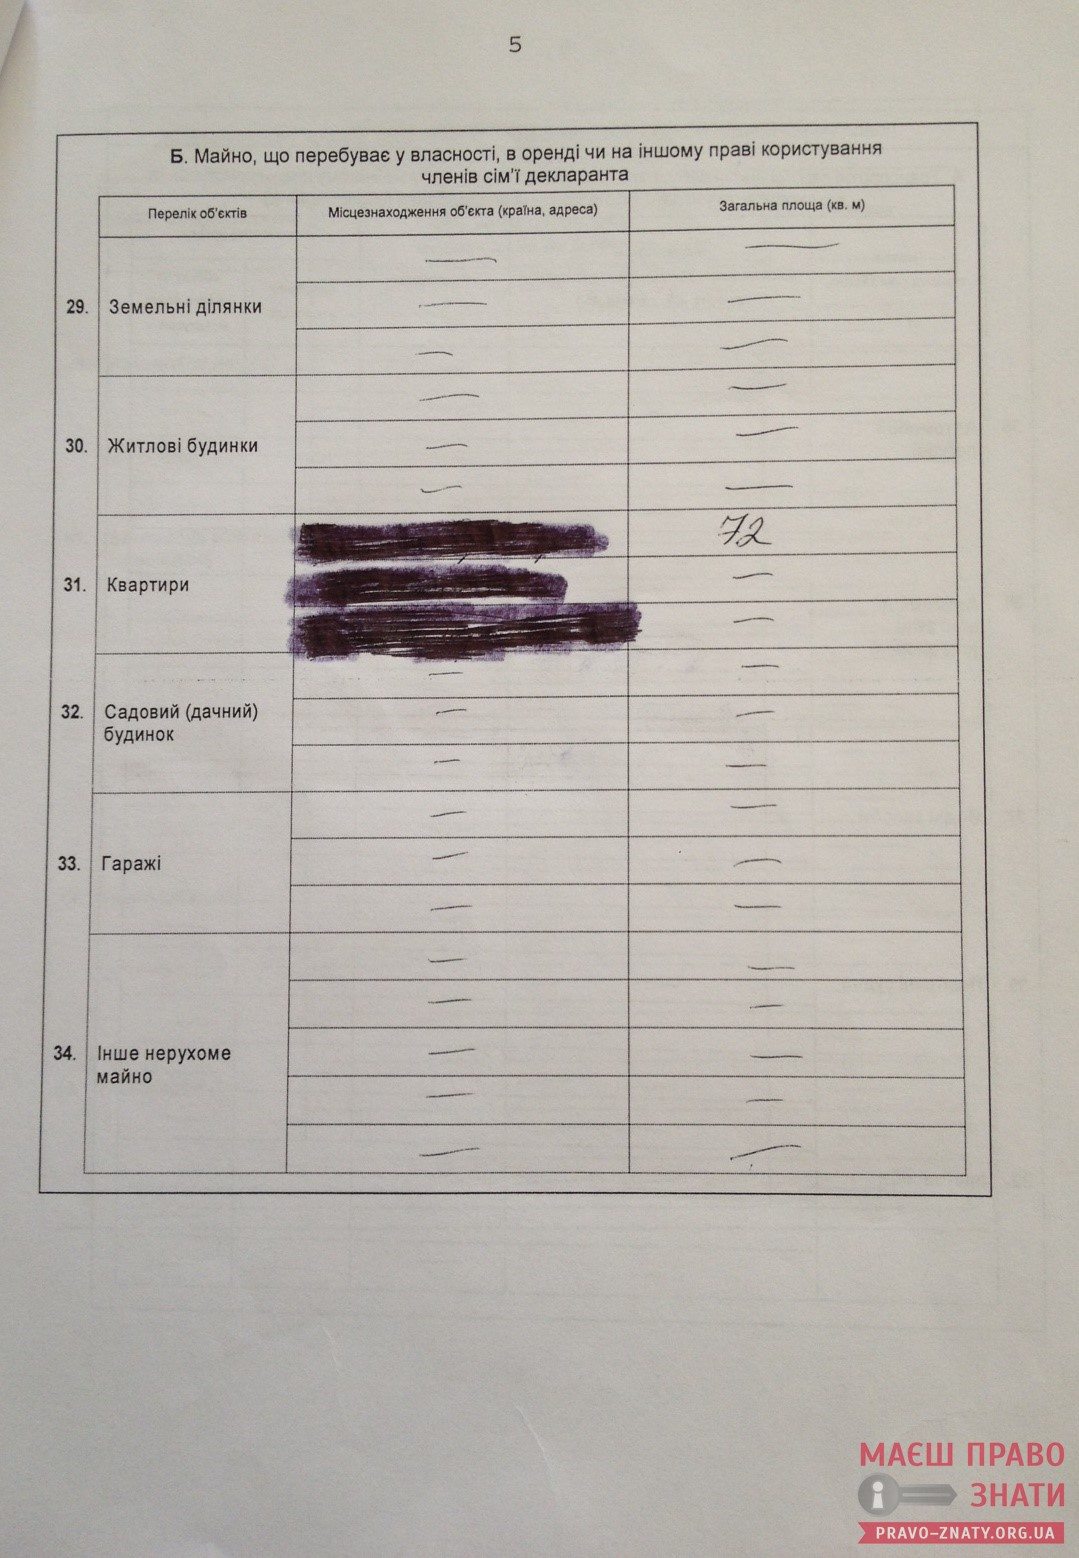 5
Б. Майно, що перебуває у власності, в оренді чи на іншому праві користування
членів сім'ї декларанта
Перелік об'єктів Місцезнаходження об'єкта (країна, адреса) Загальна площа (кв. м)
29. Земельні ділянки
30. Житлові будинки
72
31. Квартири
32. Садовий (дачний)
будинок
33. Гаражі
34. Інше нерухоме
майно
МАЄШ ПРАВО
ЗНАТИ
PRAVO-ZNATY.ORG.UA